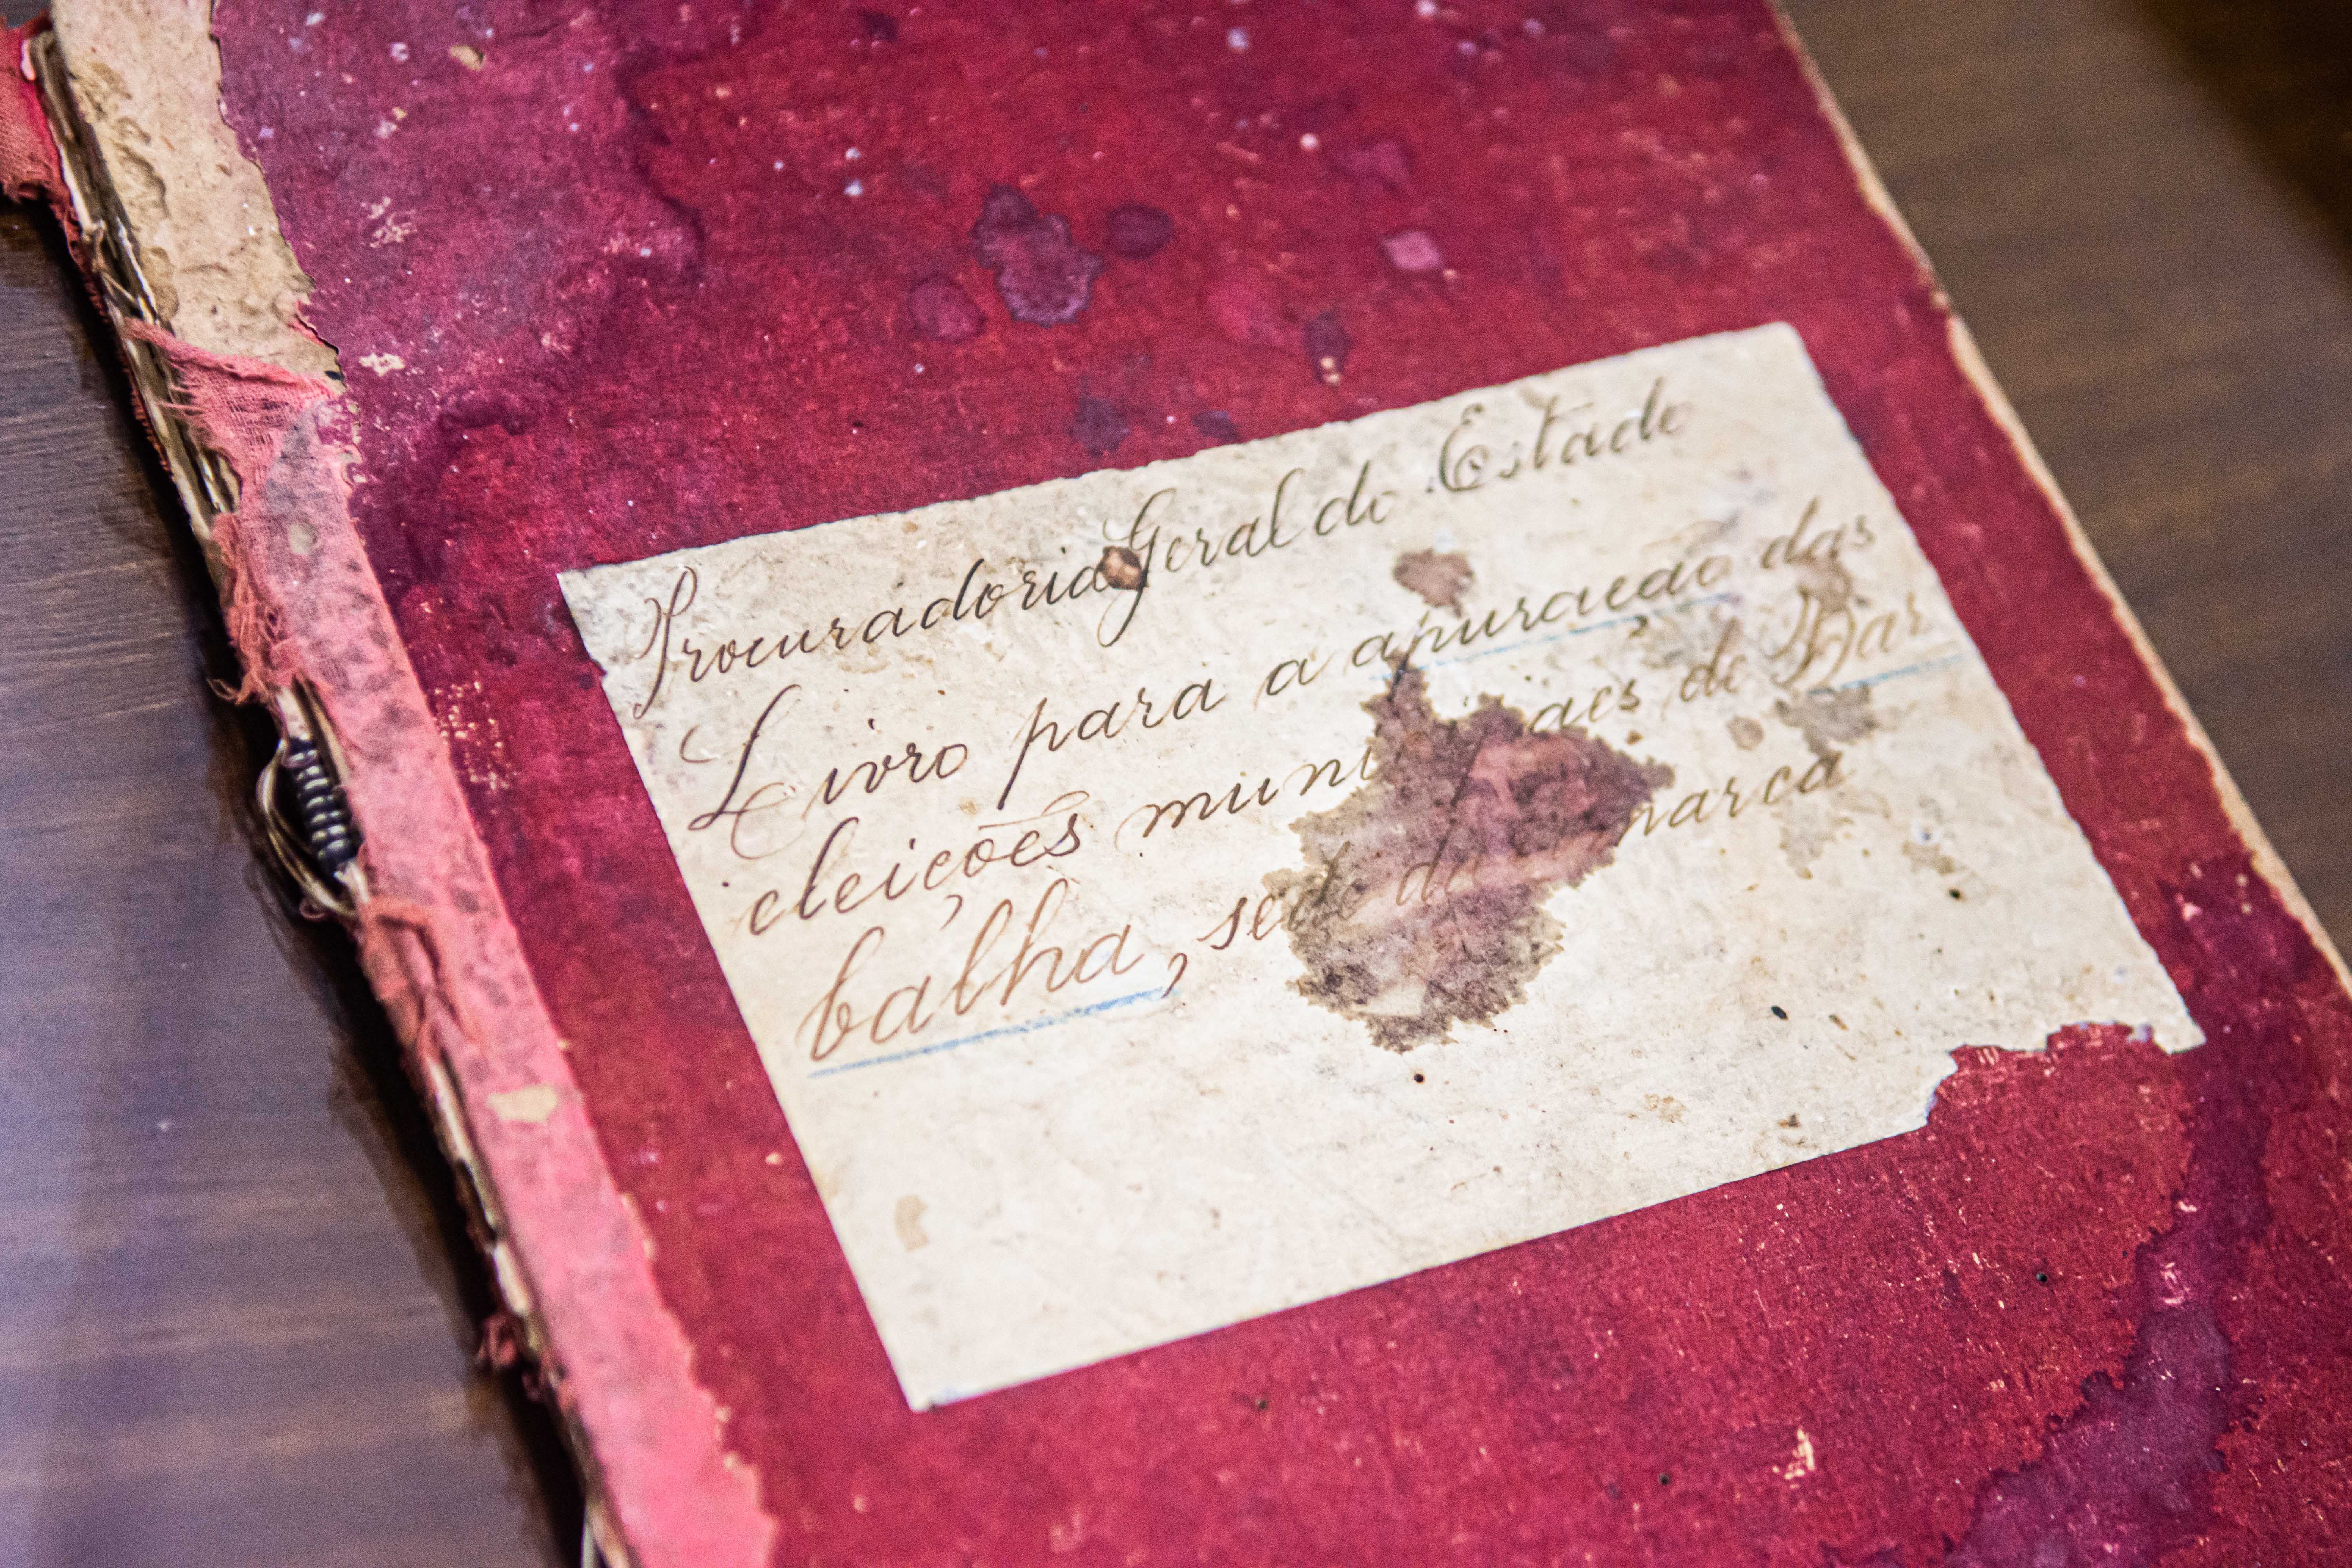 Procuradoria Geral do Estado
Livro para a apuração das
eleições municipaes de Bar
balha, sede da comarca